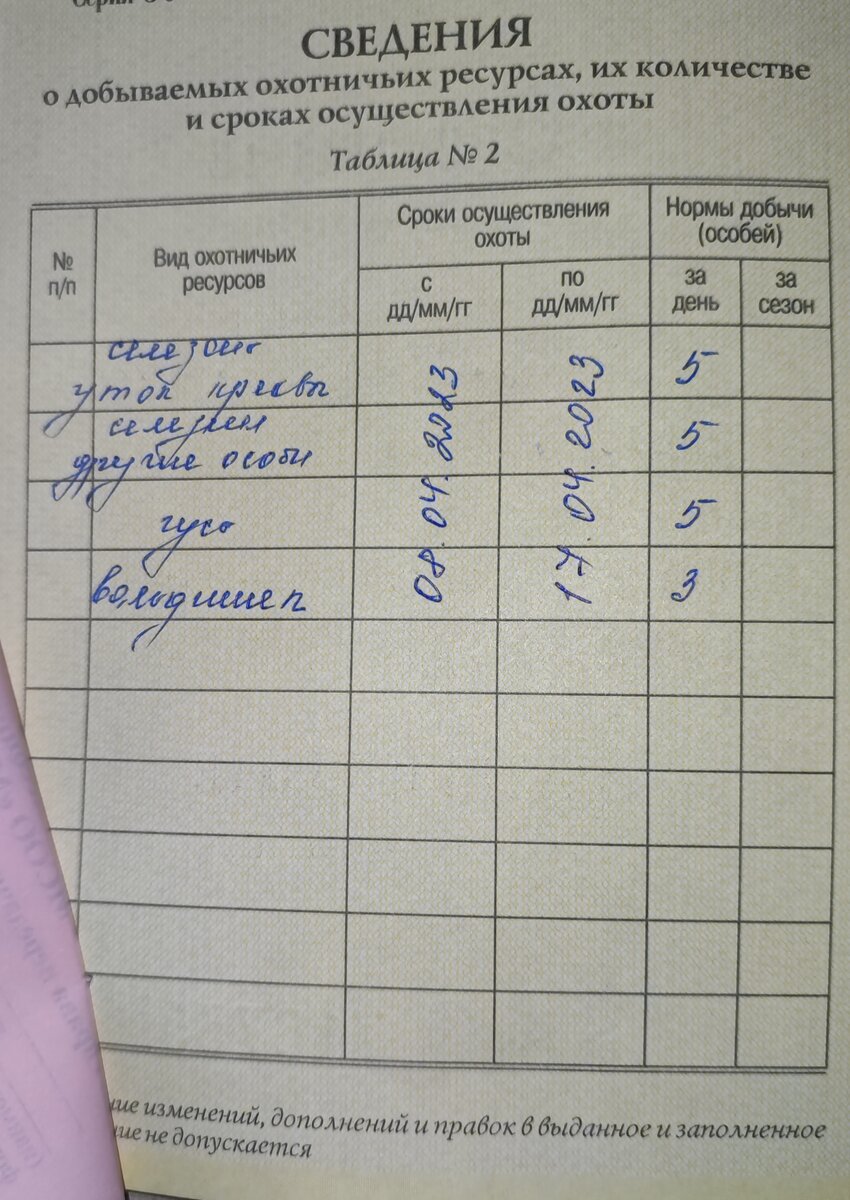 СВЕДЕНИЯ
о добываемых охотничьих ресурсах, их количестве
и сроках осуществления охоты
Таблица № 2
№ п/п
Вид охотничьих
ресурсов
Сроки осуществления
охоты
Нормы добычи
(особей)
с
дд/мм/гг
по
дд/мм/гг
за
день
за
сезон
уток
5
селезни
другие особи
5
гусь
5
вальдшнеп
3
08.04.2023
17.04.2023
ние изменений, дополнений и правок в выданное и заполненное
ние не допускается